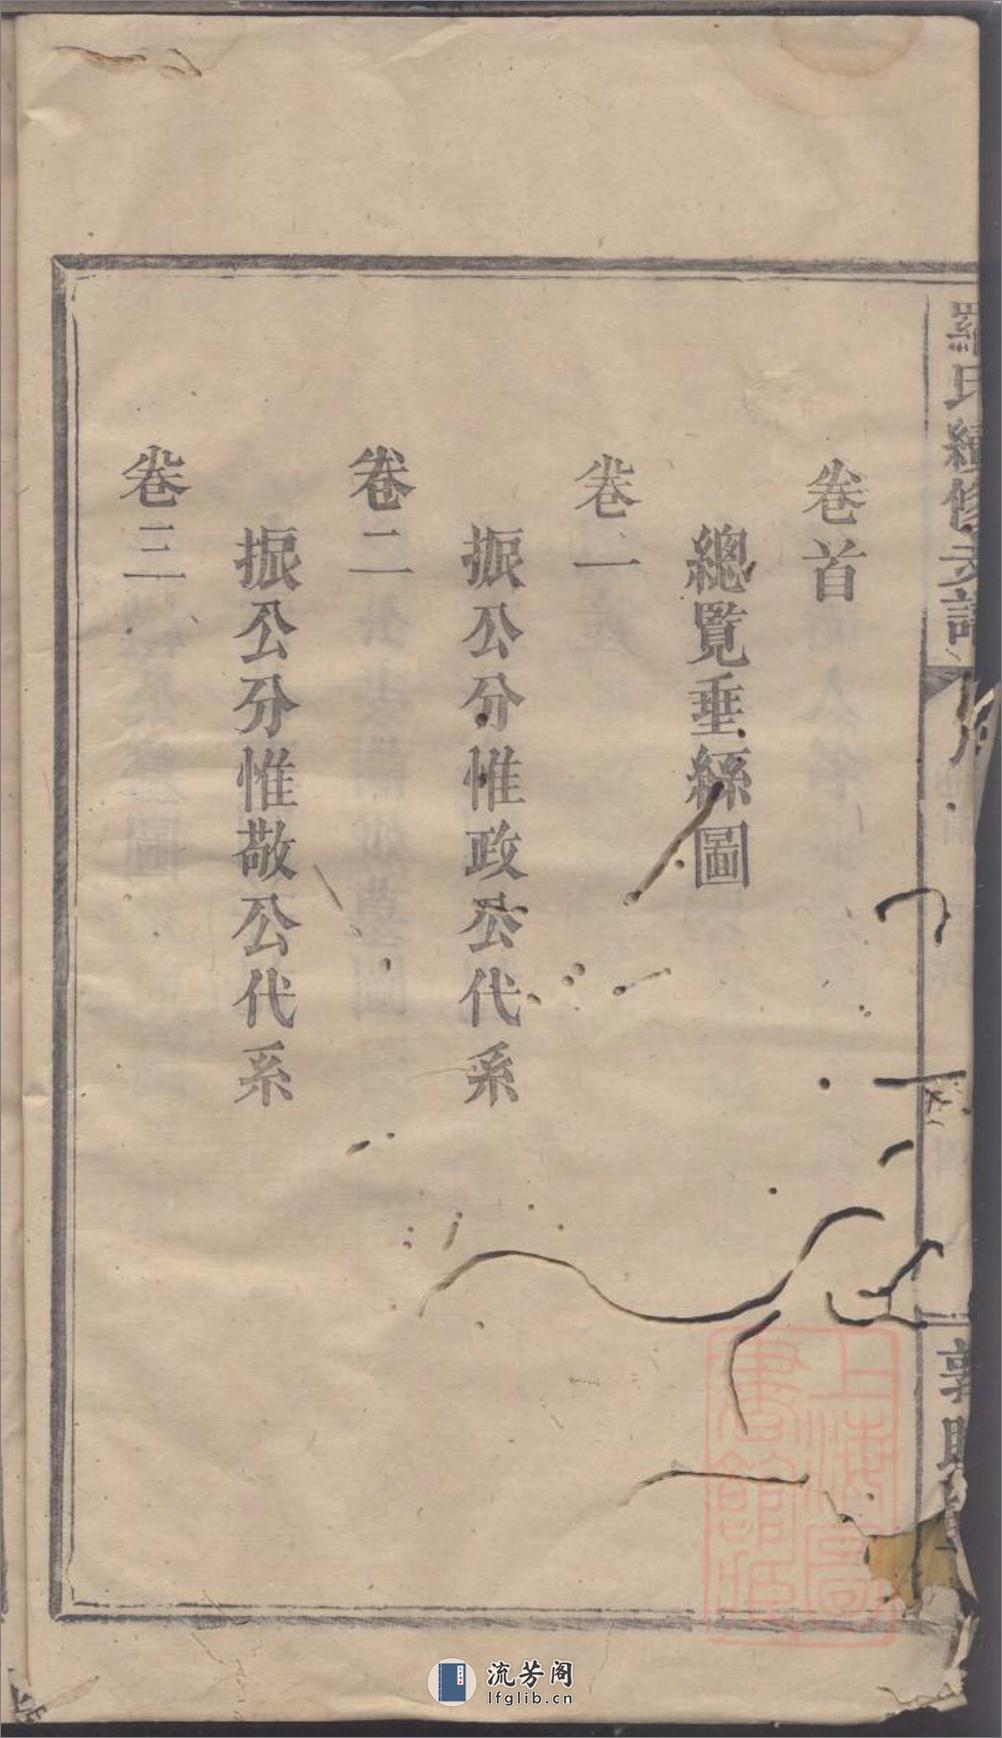 羅氏續修支譜
卷首
總覽垂絲圖
卷一
振公分惟政公代系
卷二
振公分惟敬公代系
卷三
敦睦堂
上海圖
書館藏
流芳阁
lfglib.cn